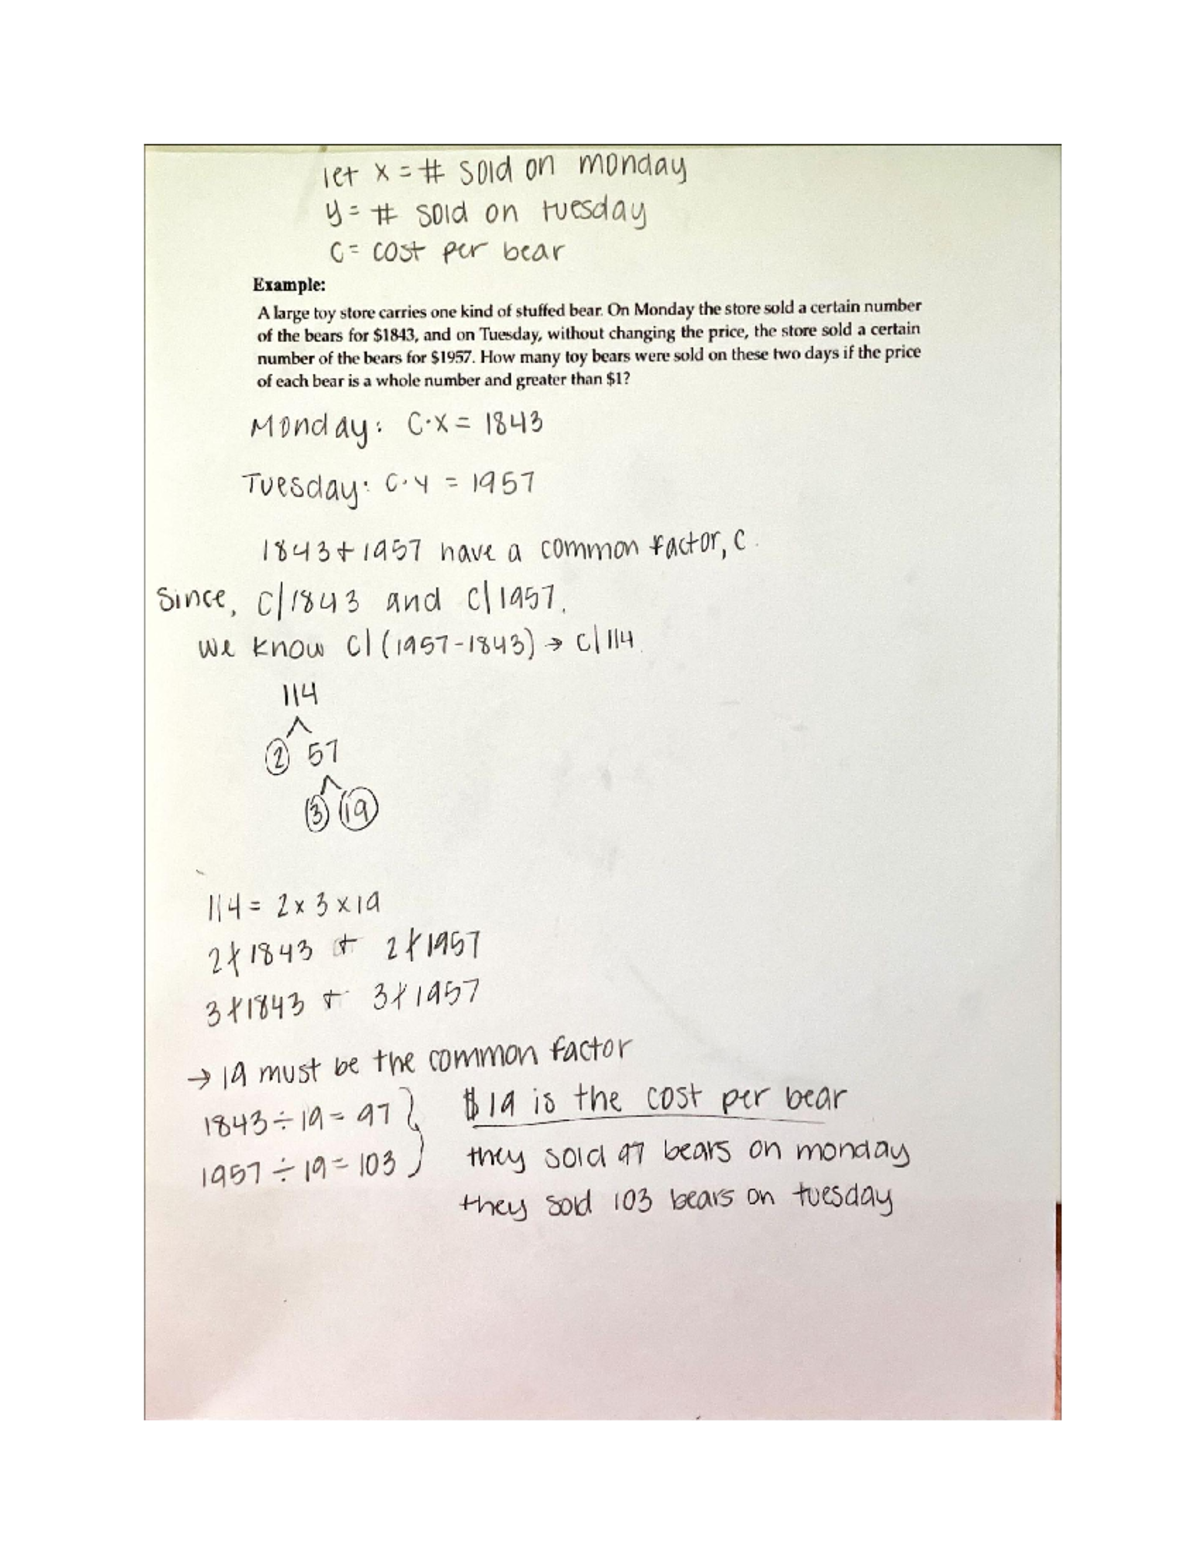 let x = # sold on monday
y = # sold on tuesday
c = cost per bear
Example:
A large toy store carries one kind of stuffed bear. On Monday the store sold a certain number
of the bears for $1843, and on Tuesday, without changing the price, the store sold a certain
number of the bears for $1957. How many toy bears were sold on these two days if the price
of each bear is a whole number and greater than $1?
Monday: C·X = 1843
Tuesday: C·Y = 1957
1843 + 1957 have a common factor, c.
Since, c|1843 and c|1957.
We know c|(1957-1843) → c|114.
114
2 57
3 19
114 = 2 x 3 x 19
2∤1843 + 2∤1957
3∤1843 + 3∤1957
→ 19 must be the common factor
1843 ÷ 19 = 97 } $19 is the cost per bear
1957 ÷ 19 = 103 they sold 97 bears on monday
they sold 103 bears on tuesday